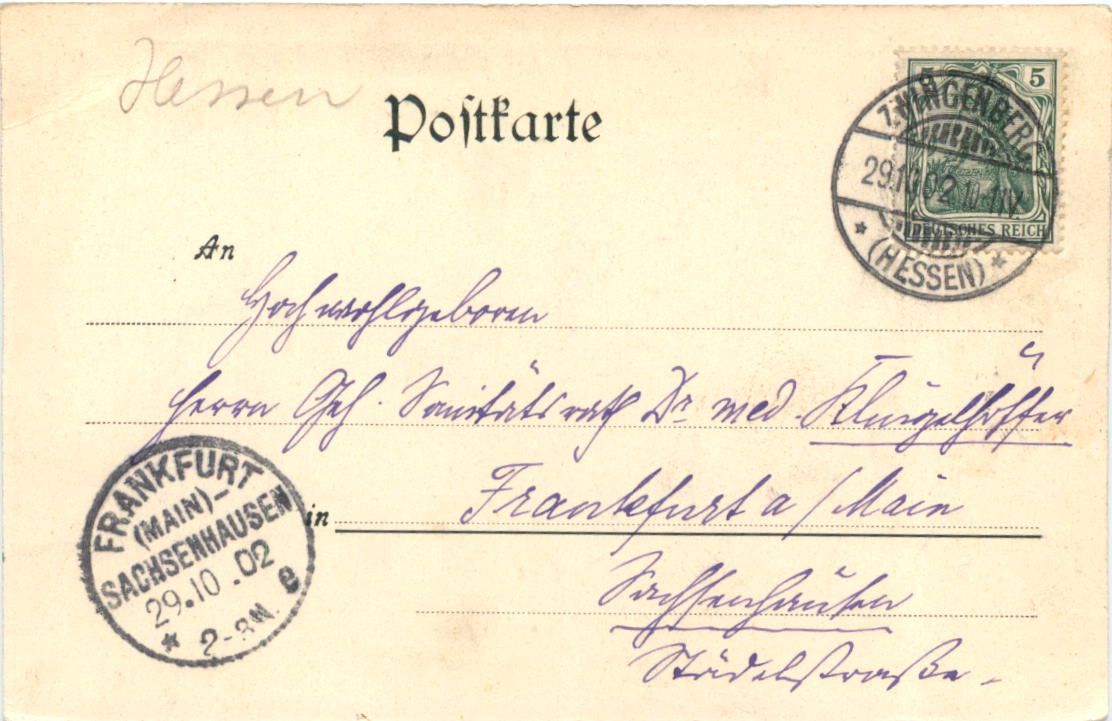 Hessen
Postkarte
5 5
DEUTSCHES REICH
ZWINGENBERG
29.10.02 10-11V.
* (HESSEN) *
An
Hochwohlgeboren
Herrn Geh. Sanitätsrath Dr. med. Klingelhöffer
in Frankfurt a/Main
Sachsenhausen
Städelstraße.
FRANKFURT
(MAIN)-
SACHSENHAUSEN
29.10.02 e
* 2-3N.